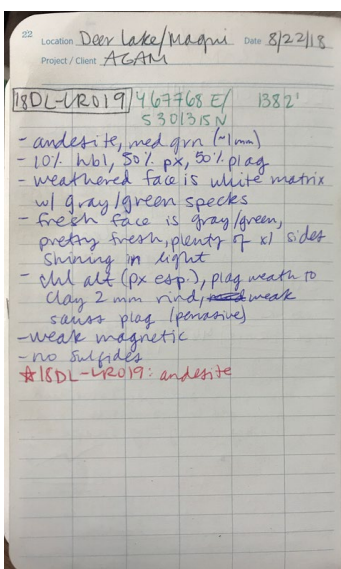 22 Location Deer Lake/Maqui Date 8/22/18
Project / Client AGAM
18DL-LR019 467768 E/ 1382'
5301315N
- andesite, med grn (~1mm)
- 10% hbl, 50% px, 50% plag
- weathered face is white matrix
w/ gray/green specks
- fresh face is gray/green,
pretty fresh, plenty of xl sides
shining in light
- chl alt (px esp.), plag weath to
clay 2 mm rind, weak
sauss plag (pervasive)
- weak magnetic
- no sulfides
*18DL-LR019: andesite